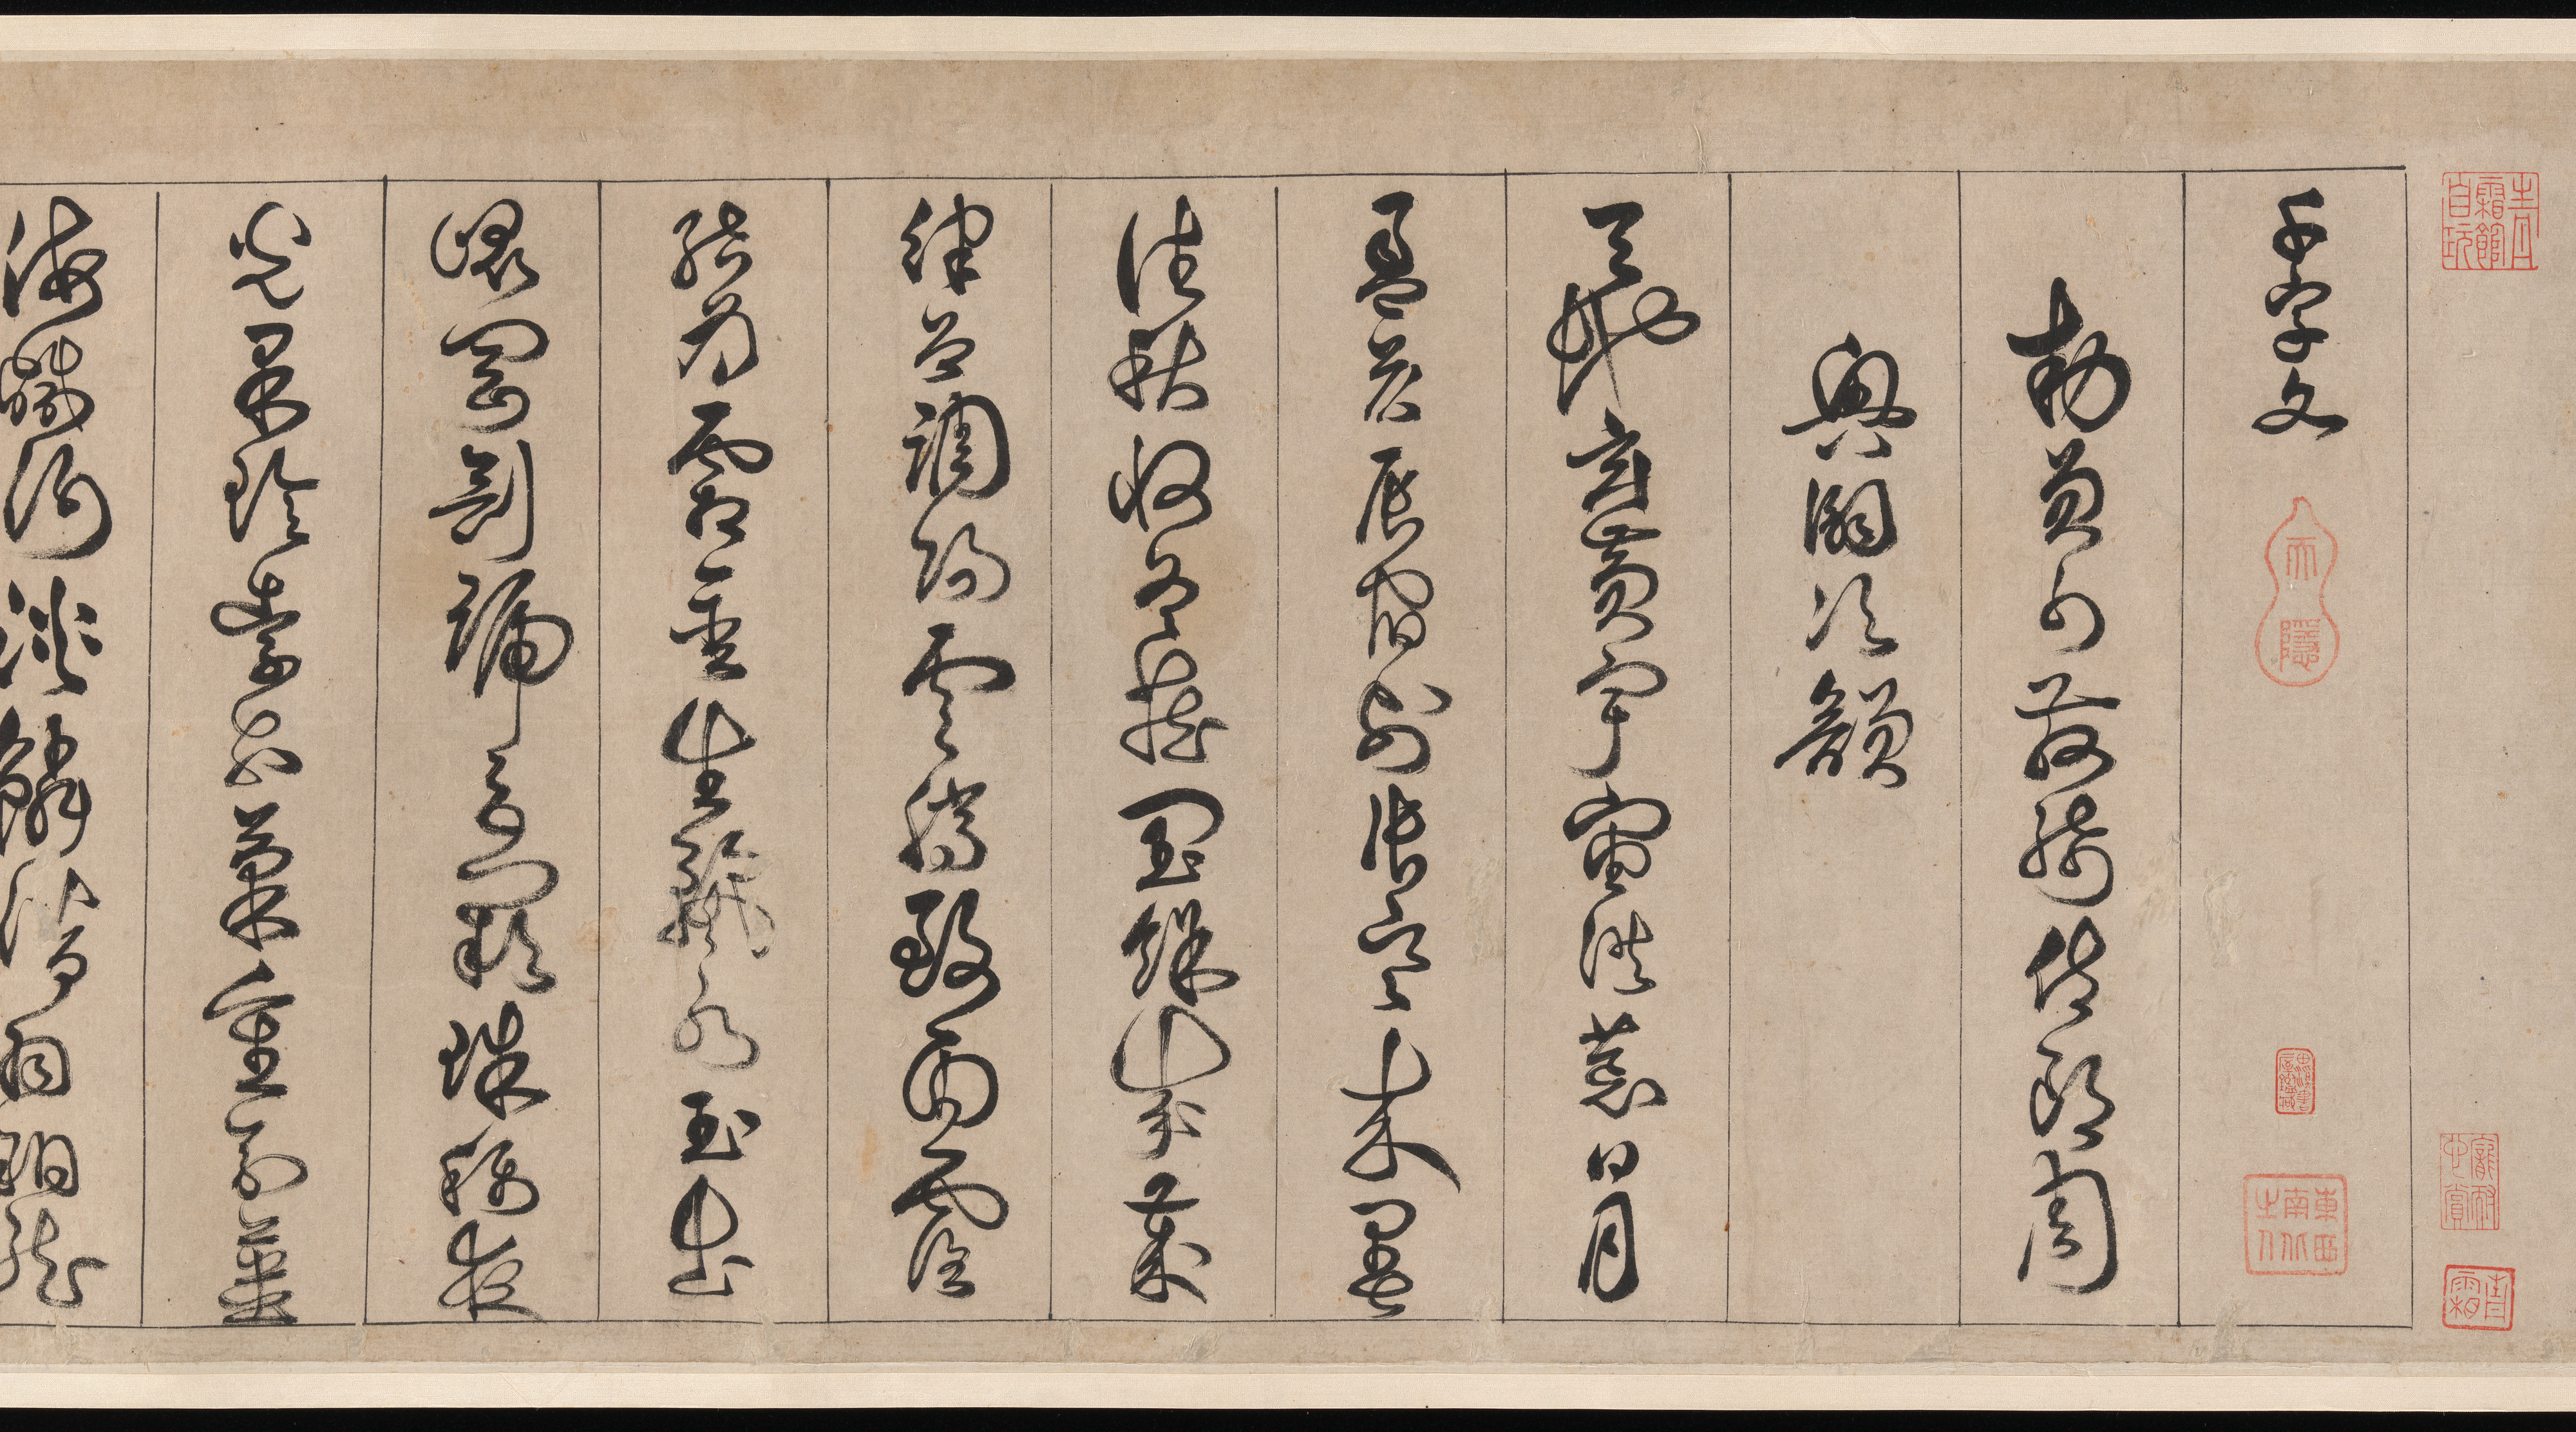 千字文
勅員外散騎侍郎周
興嗣次韻
天地玄黃宇宙洪荒日月
盈昃辰宿列張寒來暑
往秋收冬藏閏餘成歲
律召調陽雲騰致雨露
結為霜金生麗水玉出
崐岡劍號巨闕珠稱夜
光果珍李柰菜重芥薑
海鹹河淡鱗潛羽翔龍
青霜館
東西南北之人
青霜